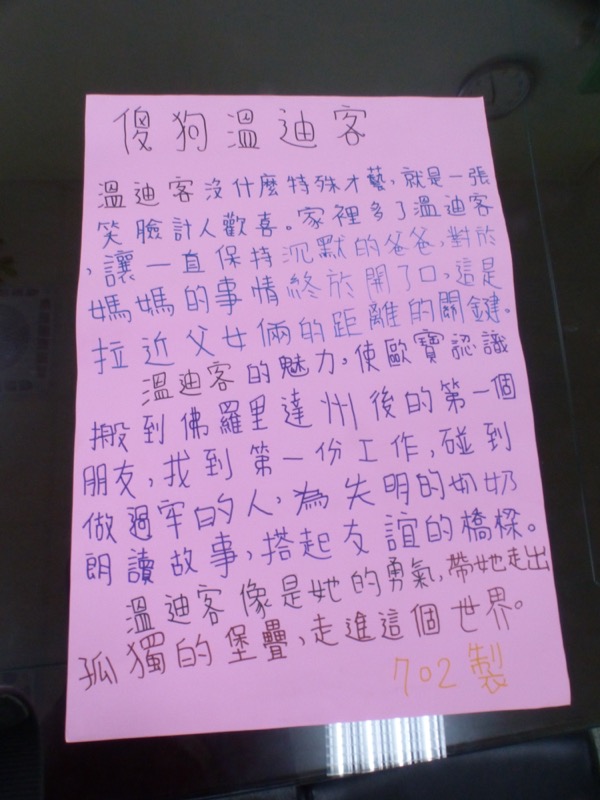 傻狗溫迪客
溫迪客沒什麼特殊才藝,就是一張
笑臉討人歡喜。家裡多了溫迪客
,讓一直保持沉默的爸爸,對於
媽媽的事情終於開了口,這是
拉近父女倆的距離的關鍵。
溫迪客的魅力,使歐寶認識
搬到佛羅里達州後的第一個
朋友,找到第一份工作,碰到
做過牢的人,為失明的奶奶
朗讀故事,搭起友誼的橋樑。
溫迪客像是她的勇氣,帶她走出
孤獨的堡壘,走進這個世界。
702製